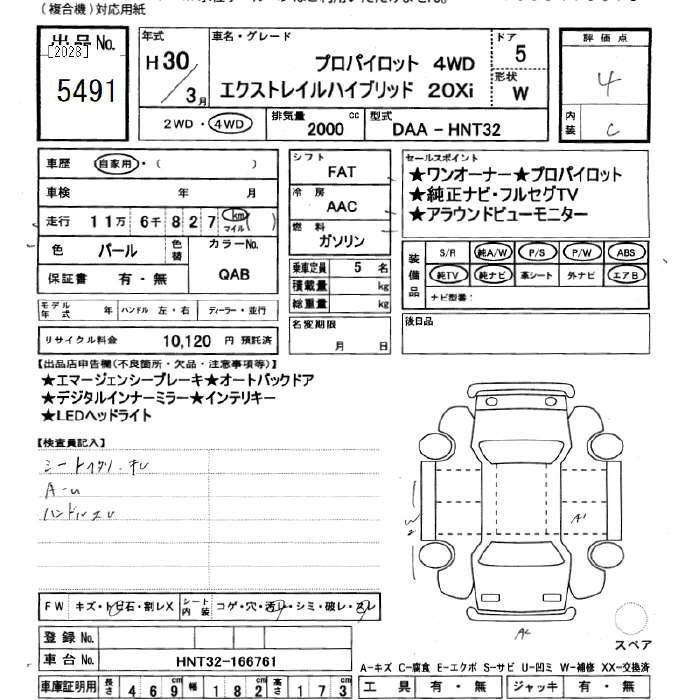 (複合機)対応用紙
出品No.
[2028]
5491
年式
H30
3月
車名・グレード
プロパイロット 4WD
エクストレイルハイブリッド 20Xi
ドア
5
形状
W
評価点
4
内装
C
2WD・4WD
排気量
2000 cc
型式
DAA-HNT32
車歴 自家用・( )
車検 年 月
走行 11万 6千 827 km マイル ( )
色 パール 色替
カラーNo.
QAB
保証書 有・無
モデル年式 年 ハンドル 左・右 ディーラー・並行
リサイクル料金 10,120 円 預託済
シフト
FAT
冷房
AAC
燃料
ガソリン
乗車定員 5 名
積載量 kg
総重量 kg
名変期限
月 日
セールスポイント
★ワンオーナー★プロパイロット
★純正ナビ・フルセグTV
★アラウンドビューモニター
装備品
S/R 純A/W P/S P/W ABS
純TV 純ナビ 革シート 外ナビ エアB
ナビ型番:
後日品
【出品店申告欄(不良箇所・欠品・注意事項等)】
★エマージェンシーブレーキ★オートバックドア
★デジタルインナーミラー★インテリキー
★LEDヘッドライト
【検査員記入】
A-U
W2
A1
FW キズ・トビ石・割レX
シート内装 コゲ・穴・汚レ・シミ・破レ・スレ
スペア
登録No.
車台No. HNT32-166761
A-キズ C-腐食 E-エクボ S-サビ U-凹ミ W-補修 XX-交換済
車庫証明用 長さ 469 cm 幅 182 cm 高さ 173 cm
工具 有・無 ジャッキ 有・無